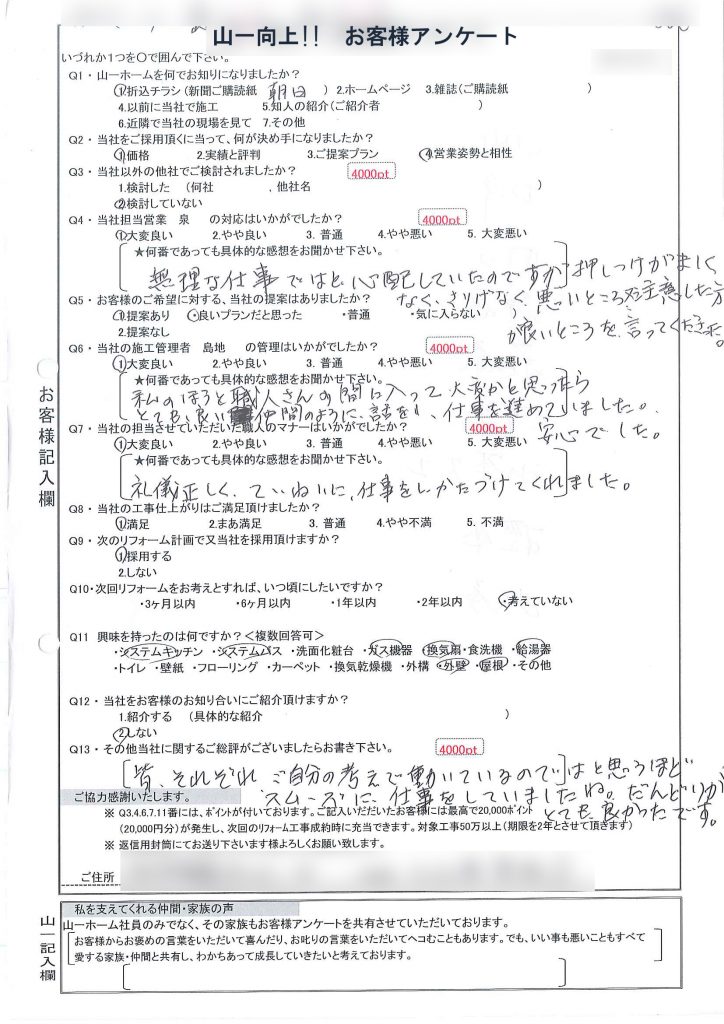 山一向上!! お客様アンケート
いづれか1つを〇で囲んで下さい。
Q1・山一ホームを何でお知りになりましたか？
1.折込チラシ（新聞ご購読紙 朝日 ）2.ホームページ 3.雑誌（ご購読紙 ）
4.以前に当社で施工 5.知人の紹介（ご紹介者 ）
6.近隣で当社の現場を見て 7.その他
Q2・当社をご採用頂くに当って、何が決め手になりましたか？
1.価格 2.実績と評判 3.ご提案プラン 4.営業姿勢と相性
Q3・当社以外の他社でご検討されましたか？ 4000pt
1.検討した （何社 ，他社名 ）
2.検討していない
Q4・当社担当営業 泉 の対応はいかがでしたか？ 4000pt
1.大変良い 2.やや良い 3.普通 4.やや悪い 5.大変悪い
★何番であっても具体的な感想をお聞かせ下さい。
無理な仕事ではと心配していたのですが押しつけがましく
なく、さりげなく、悪いところを注意した方
が良いところを、言ってくださった。
Q5・お客様のご希望に対する、当社の提案はありましたか？
1.提案あり （・良いプランだと思った ・普通 ・気に入らない ）
2.提案なし
Q6・当社の施工管理者 島地 の管理はいかがでしたか？ 4000pt
1.大変良い 2.やや良い 3.普通 4.やや悪い 5.大変悪い
★何番であっても具体的な感想をお聞かせ下さい。
私のほうと職人さんの間に入って大変かと思ったら
とても、良い仲間のように、話をし、仕事を進めていました。
安心でした。
Q7・当社の担当させていただいた職人のマナーはいかがでしたか？ 4000pt
1.大変良い 2.やや良い 3.普通 4.やや悪い 5.大変悪い
★何番であっても具体的な感想をお聞かせ下さい。
礼儀正しく、ていねいに、仕事をしかたづけてくれました。
Q8・当社の工事仕上がりはご満足頂けましたか？
1.満足 2.まあ満足 3.普通 4.やや不満 5.不満
Q9・次のリフォーム計画で又当社を採用頂けますか？
1.採用する
2.しない
Q10・次回リフォームをお考えとすれば、いつ頃にしたいですか？
・3ヶ月以内 ・6ヶ月以内 ・1年以内 ・2年以内 ・考えていない
Q11 興味を持ったのは何ですか？＜複数回答可＞
・システムキッチン ・システムバス ・洗面化粧台 ・ガス機器 ・換気扇 ・食洗機 ・給湯器
・トイレ ・壁紙 ・フローリング ・カーペット ・換気乾燥機 ・外構 ・外壁 ・屋根 ・その他
Q12・当社をお客様のお知り合いにご紹介頂けますか？
1.紹介する （具体的な紹介 ）
2.しない
Q13・その他当社に関するご総評がございましたらお書き下さい。 4000pt
皆、それぞれ ご自分の考えで働いているのではと思うほど
スムーズに、仕事をしていましたね。だんどりが
とても良かったです。
ご協力感謝いたします。
※ Q3,4.6.7.11番には、ポイントが付いております。ご記入いただいたお客様には最高で20,000ポイント
（20,000円分）が発生し、次回のリフォーム工事成約時に充当できます。対象工事50万以上（期限を2年とさせて頂きます）
※ 返信用封筒にてお送り下さいます様よろしくお願い致します。
ご住所
お客様記入欄
私を支えてくれる仲間・家族の声
山一ホーム社員のみでなく、その家族もお客様アンケートを共有させていただいております。
お客様からお褒めの言葉をいただいて喜んだり、お叱りの言葉をいただいてヘコむこともあります。でも、いい事も悪いこともすべて
愛する家族・仲間と共有し、わかちあって成長していきたいと考えております。
山一記入欄